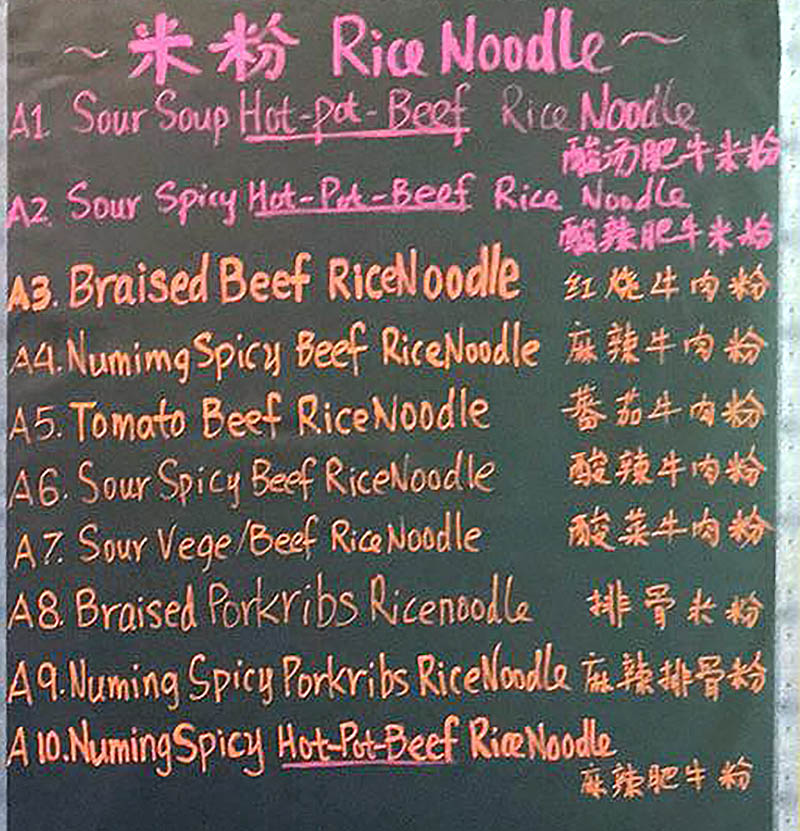 ~ 米粉 Rice Noodle ~
A1 Sour Soup Hot-pot-Beef Rice Noodle
酸汤肥牛米粉
A2. Sour Spicy Hot-Pot-Beef Rice Noodle
酸辣肥牛米粉
A3. Braised Beef RiceNoodle 红烧牛肉粉
A4. Numimg Spicy Beef RiceNoodle 麻辣牛肉粉
A5. Tomato Beef RiceNoodle 蕃茄牛肉粉
A6. Sour Spicy Beef RiceNoodle 酸辣牛肉粉
A7. Sour Vege/Beef RiceNoodle 酸菜牛肉粉
A8. Braised Porkribs Ricenoodle 排骨米粉
A9. Numing Spicy Porkribs RiceNoodle 麻辣排骨粉
A10. Numing Spicy Hot-Pot-Beef RiceNoodle
麻辣肥牛粉